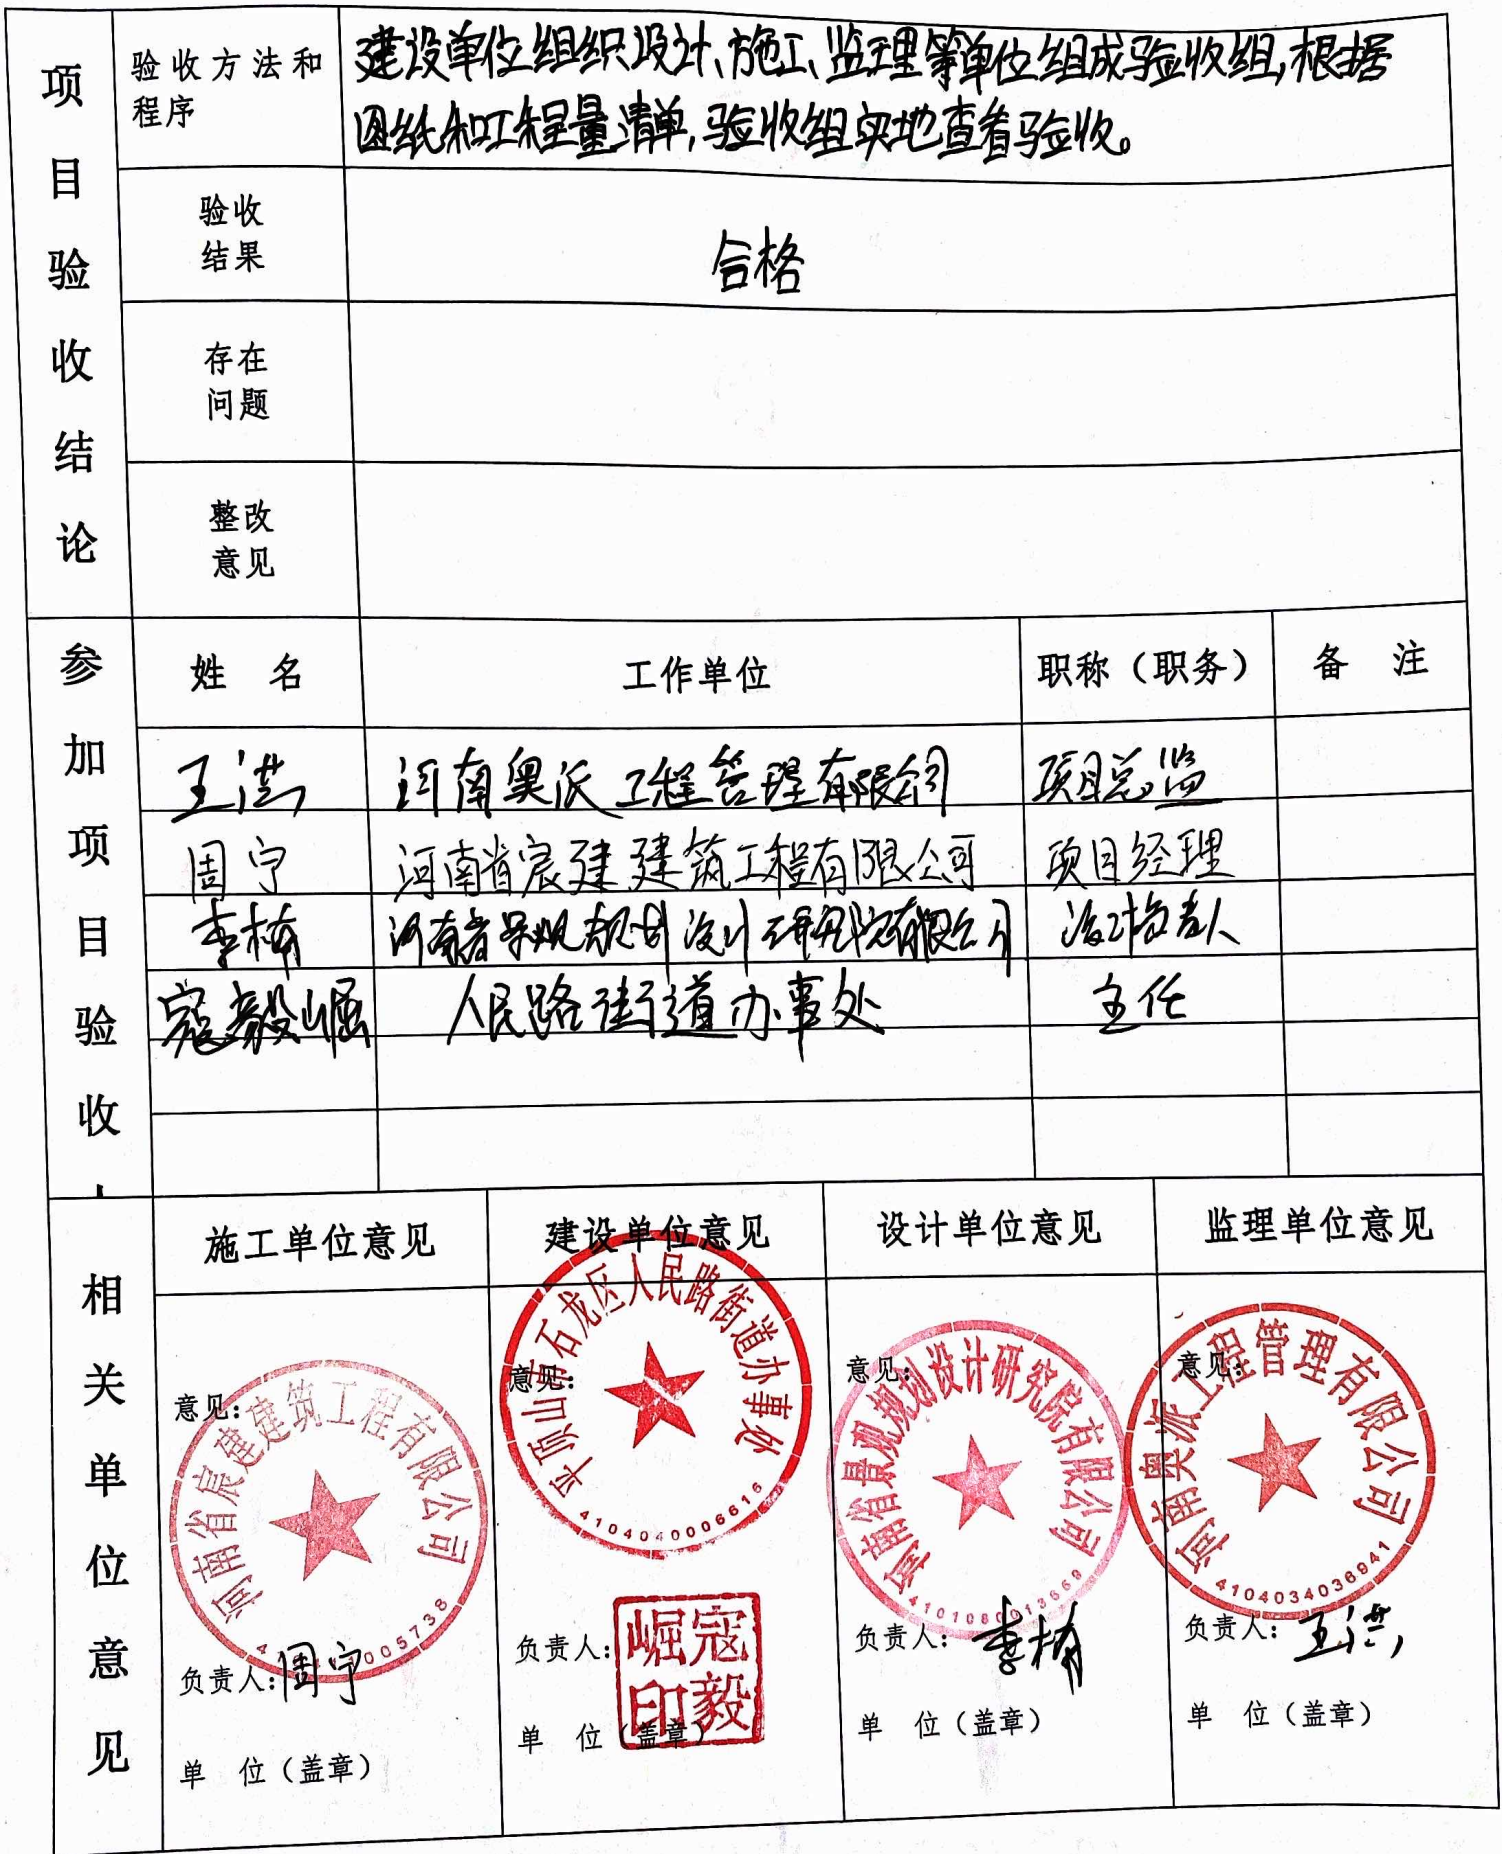 项目验收结论
验收方法和
程序
建设单位组织设计、施工、监理等单位组成验收组,根据
图纸和工程量清单,验收组实地查看验收。
验收
结果
合格
存在
问题
整改
意见
参加项目验收
姓 名 工作单位 职称（职务） 备 注
王洪 河南奥派工程管理有限公司 项目总监
周宁 河南省宸建建筑工程有限公司 项目经理
李楠 河南省景观规划设计研究院有限公司 设计负责人
寇毅崛 人民路街道办事处 主任
相关单位意见
施工单位意见 建设单位意见 设计单位意见 监理单位意见
意见：
河南省宸建建筑工程有限公司
005738
负责人：周宁
单 位（盖章）
意见：
平顶山市石龙区人民路街道办事处
4104040006616
负责人：
寇毅崛印
单 位（盖章）
意见：
河南省景观规划设计研究院有限公司
4101080013669
负责人：李楠
单 位（盖章）
意见：
河南奥派工程管理有限公司
4104034036941
负责人：王洪
单 位（盖章）